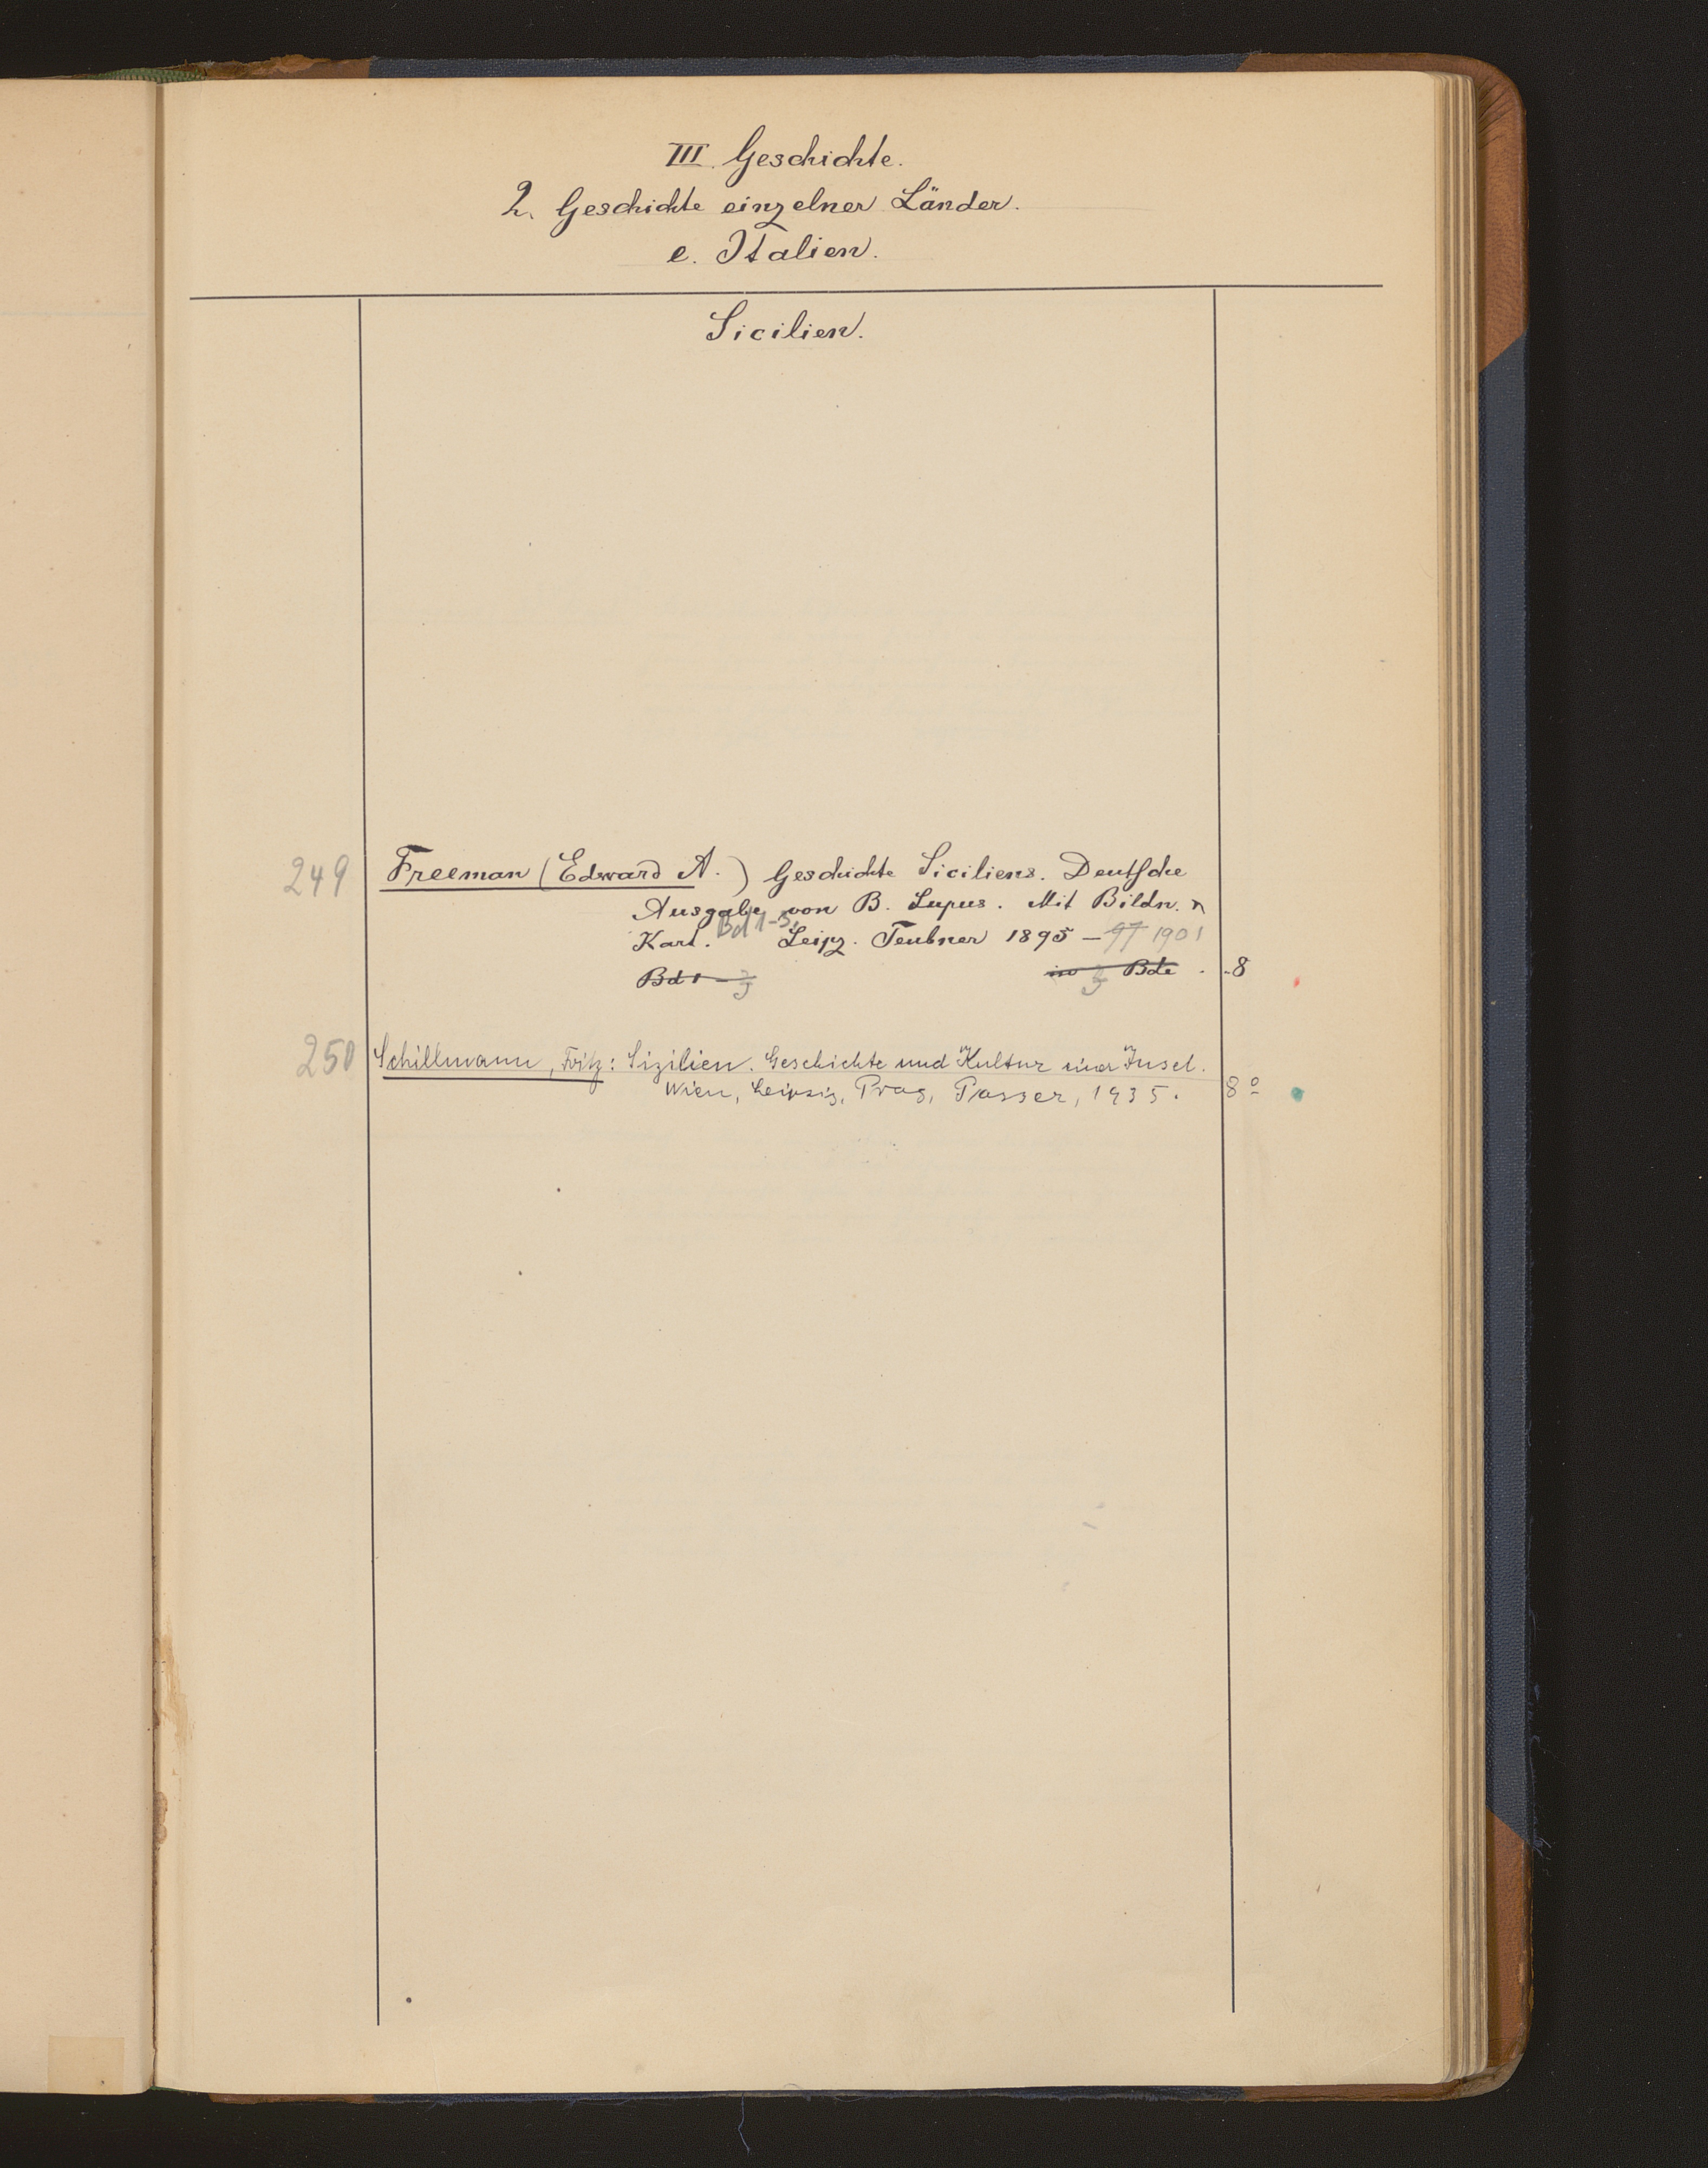 III. Geschichte.
2. Geschichte einzelner Länder.
e. Italien.
Sicilien.
249 Freeman (Edward A.) Geschichte Siciliens. Deutsche
Ausgabe von B. Lupus. Mit Bildn. u
Kart. Bd 1-3, Leipz. Teubner 1895 - 97 1901
Bd 1 - 3 in 3 Bde . 8
250 Schillmann, Fritz: Sizilien. Geschichte und Kultur einer Insel.
Wien, Leipzig, Prag, Passer, 1935. 8º